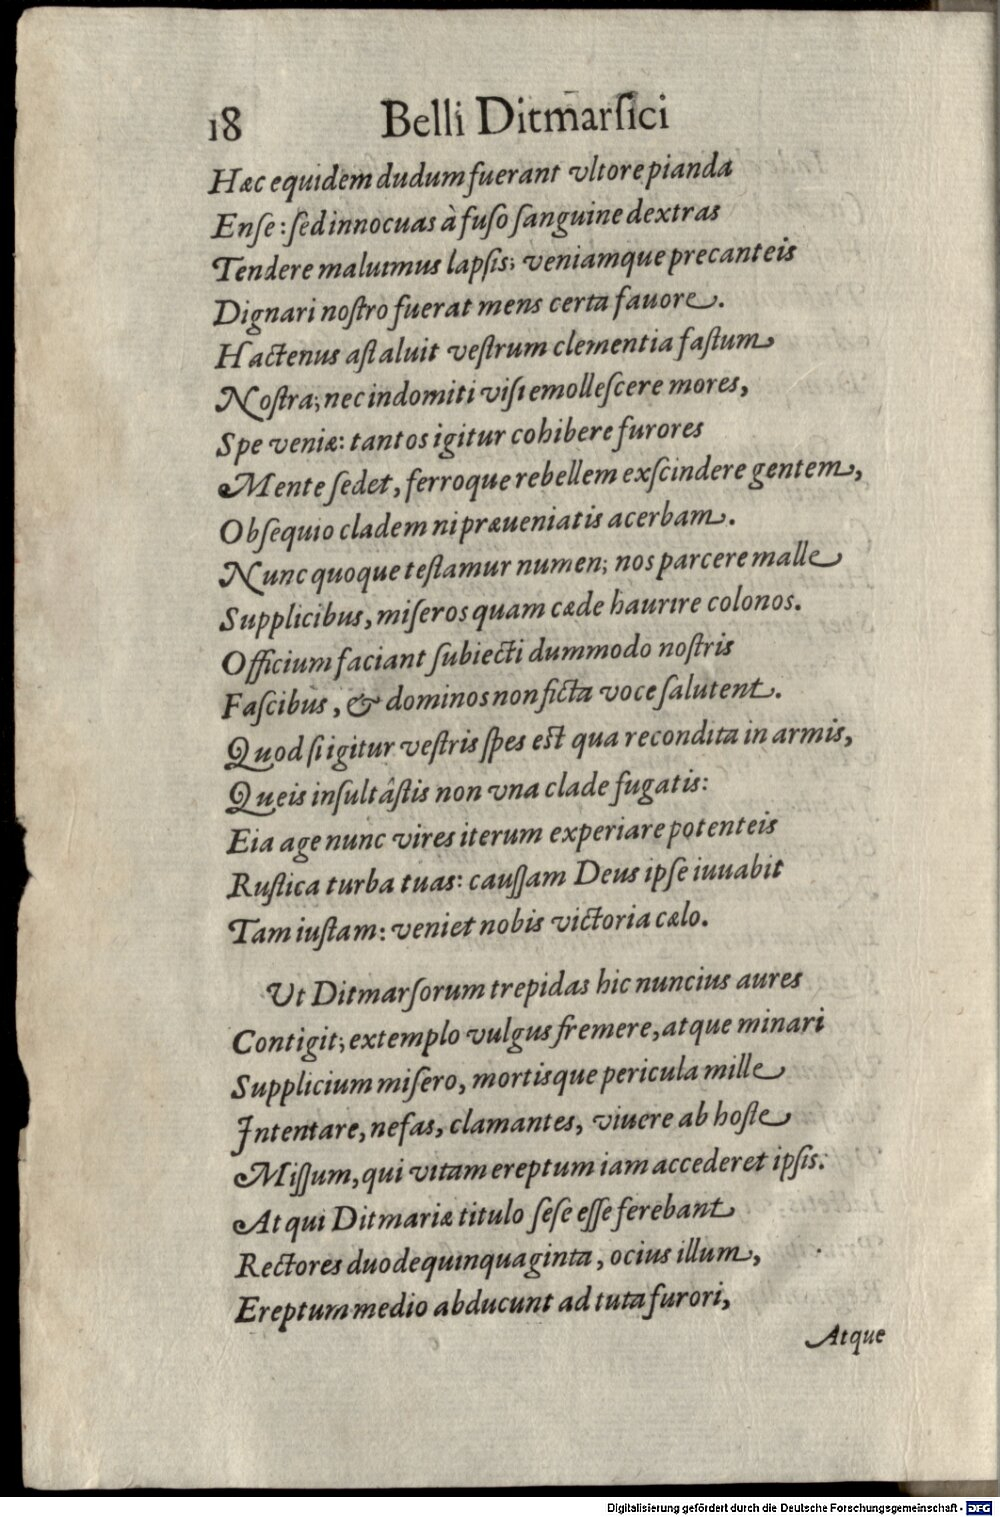 18 Belli Ditmarsici
Hæc equidem dudum fuerant vltore pianda
Enſe: ſed innocuas à fuſo ſanguine dextras
Tendere maluimus lapſis; veniamque precanteis
Dignari noſtro fuerat mens certa fauore.
Hactenus aſt aluit veſtrum clementia faſtum
Noſtra; nec indomiti viſi emolleſcere mores,
Spe veniæ: tantos igitur cohibere furores
Mente ſedet, ferroque rebellem exſcindere gentem,
Obſequio cladem ni præueniatis acerbam.
Nunc quoque teſtamur numen; nos parcere malle
Supplicibus, miſeros quam cæde haurire colonos.
Officium faciant ſubiecti dummodo noſtris
Faſcibus, & dominos non ficta voce ſalutent.
Quod ſi igitur veſtris ſpes eſt qua recondita in armis,
Queis inſultâſtis non vna clade fugatis:
Eia age nunc vires iterum experiare potenteis
Ruſtica turba tuas: cauſſam Deus ipſe iuuabit
Tam iuſtam: veniet nobis victoria cælo.
Ut Ditmarſorum trepidas hic nuncius aures
Contigit; extemplo vulgus fremere, atque minari
Supplicium miſero, mortisque pericula mille
Intentare, nefas, clamantes, viuere ab hoſte
Miſſum, qui vitam ereptum iam accederet ipſis.
At qui Ditmariæ titulo ſeſe eſſe ferebant
Rectores duodequinquaginta, ocius illum,
Ereptum medio abducunt ad tuta furori,
Atque
Digitalisierung gefördert durch die Deutsche Forschungsgemeinschaft - DFG